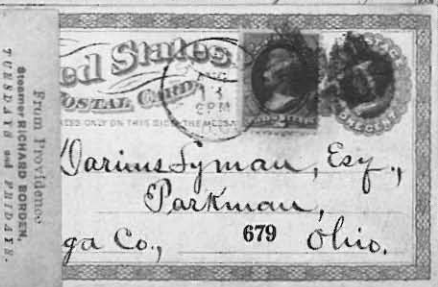 From Providence
Steamer RICHARD BORDEN,
TUESDAYS and FRIDAYS.
ed States
POSTAL CARD
ONLY ON THIS SIDE THE
13
6 PM
ONE CENT
Darius Lyman, Esq.,
Parkman,
ga Co., 679 Ohio.